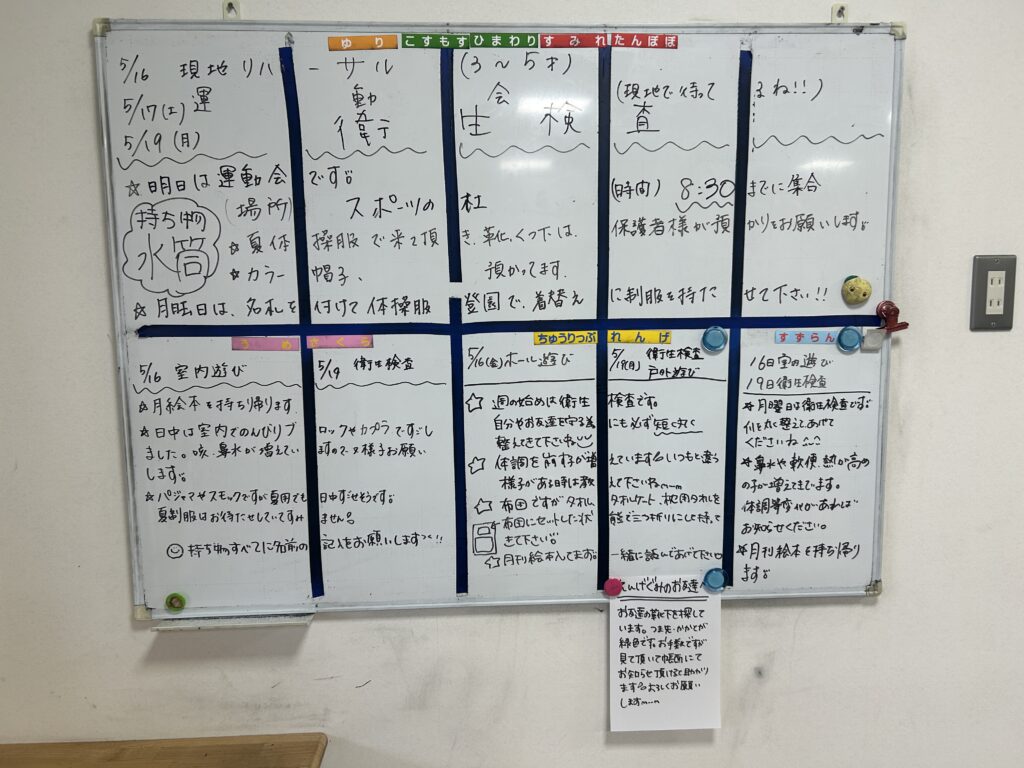 ゆり こすもす ひまわり すみれ たんぽぽ
5/16 現地リハーサル (3~5才) (現地で待ってるね!!)
5/17(土) 運動会
5/19(月) 衛生検査
☆明日は運動会です。 (時間) 8:30までに集合
持ち物 水筒
(場所) スポーツの杜 保護者様が預かりをお願いします。
☆夏体操服で来て頂き、靴、くつ下は、
☆カラー帽子、預かってます.
☆月曜日は、名札を付けて体操服登園で、着替えに制服を持たせて下さい!!
うめ さくら
5/16 室内遊び 5/19 衛生検査
☆月絵本を持ち帰ります.
☆日中は室内でのんびりブロックやカプラですごし
ました。咳、鼻水が増えていますので、様子お願い
します。
☆パジャマやスモックですが夏用でも日中すごせそうです。
夏制服はお待たせしていてすみません。
持ち物すべてに名前の記入をお願いします!!
ちゅうりっぷ れんげ
5/16(金)ホール遊び 5/19(月) 衛生検査 戸外遊び
☆週の始めは衛生検査です。
自分やお友達を守る為にも必ず短く短く
整えてきて下さいね
☆体調を崩す子が増えています。いつもと違う
様子がある時は教えて下さいね
☆布団ですがタオルケット、枕用タオルを
布団にセットした状態で三つ折りにして持って
きて下さい。
☆月刊絵本入ってます。一緒に読んであげて下さい。
すずらん
16日室内遊び
19日衛生検査
★月曜日は衛生検査です。
爪を丸く整えてあげて
くださいね
★鼻水や軟便、熱が高め
の子が増えてきています。
体調等変化があれば
お知らせください。
★月刊絵本を持ち帰り
ます。
れんげぐみのお友達へ
お友達の靴下を探して
います。つま先・かかとが
緑色です。お手数ですが
見て頂いて
お知らせ頂けると助かり
ます。よろしくお願い
します